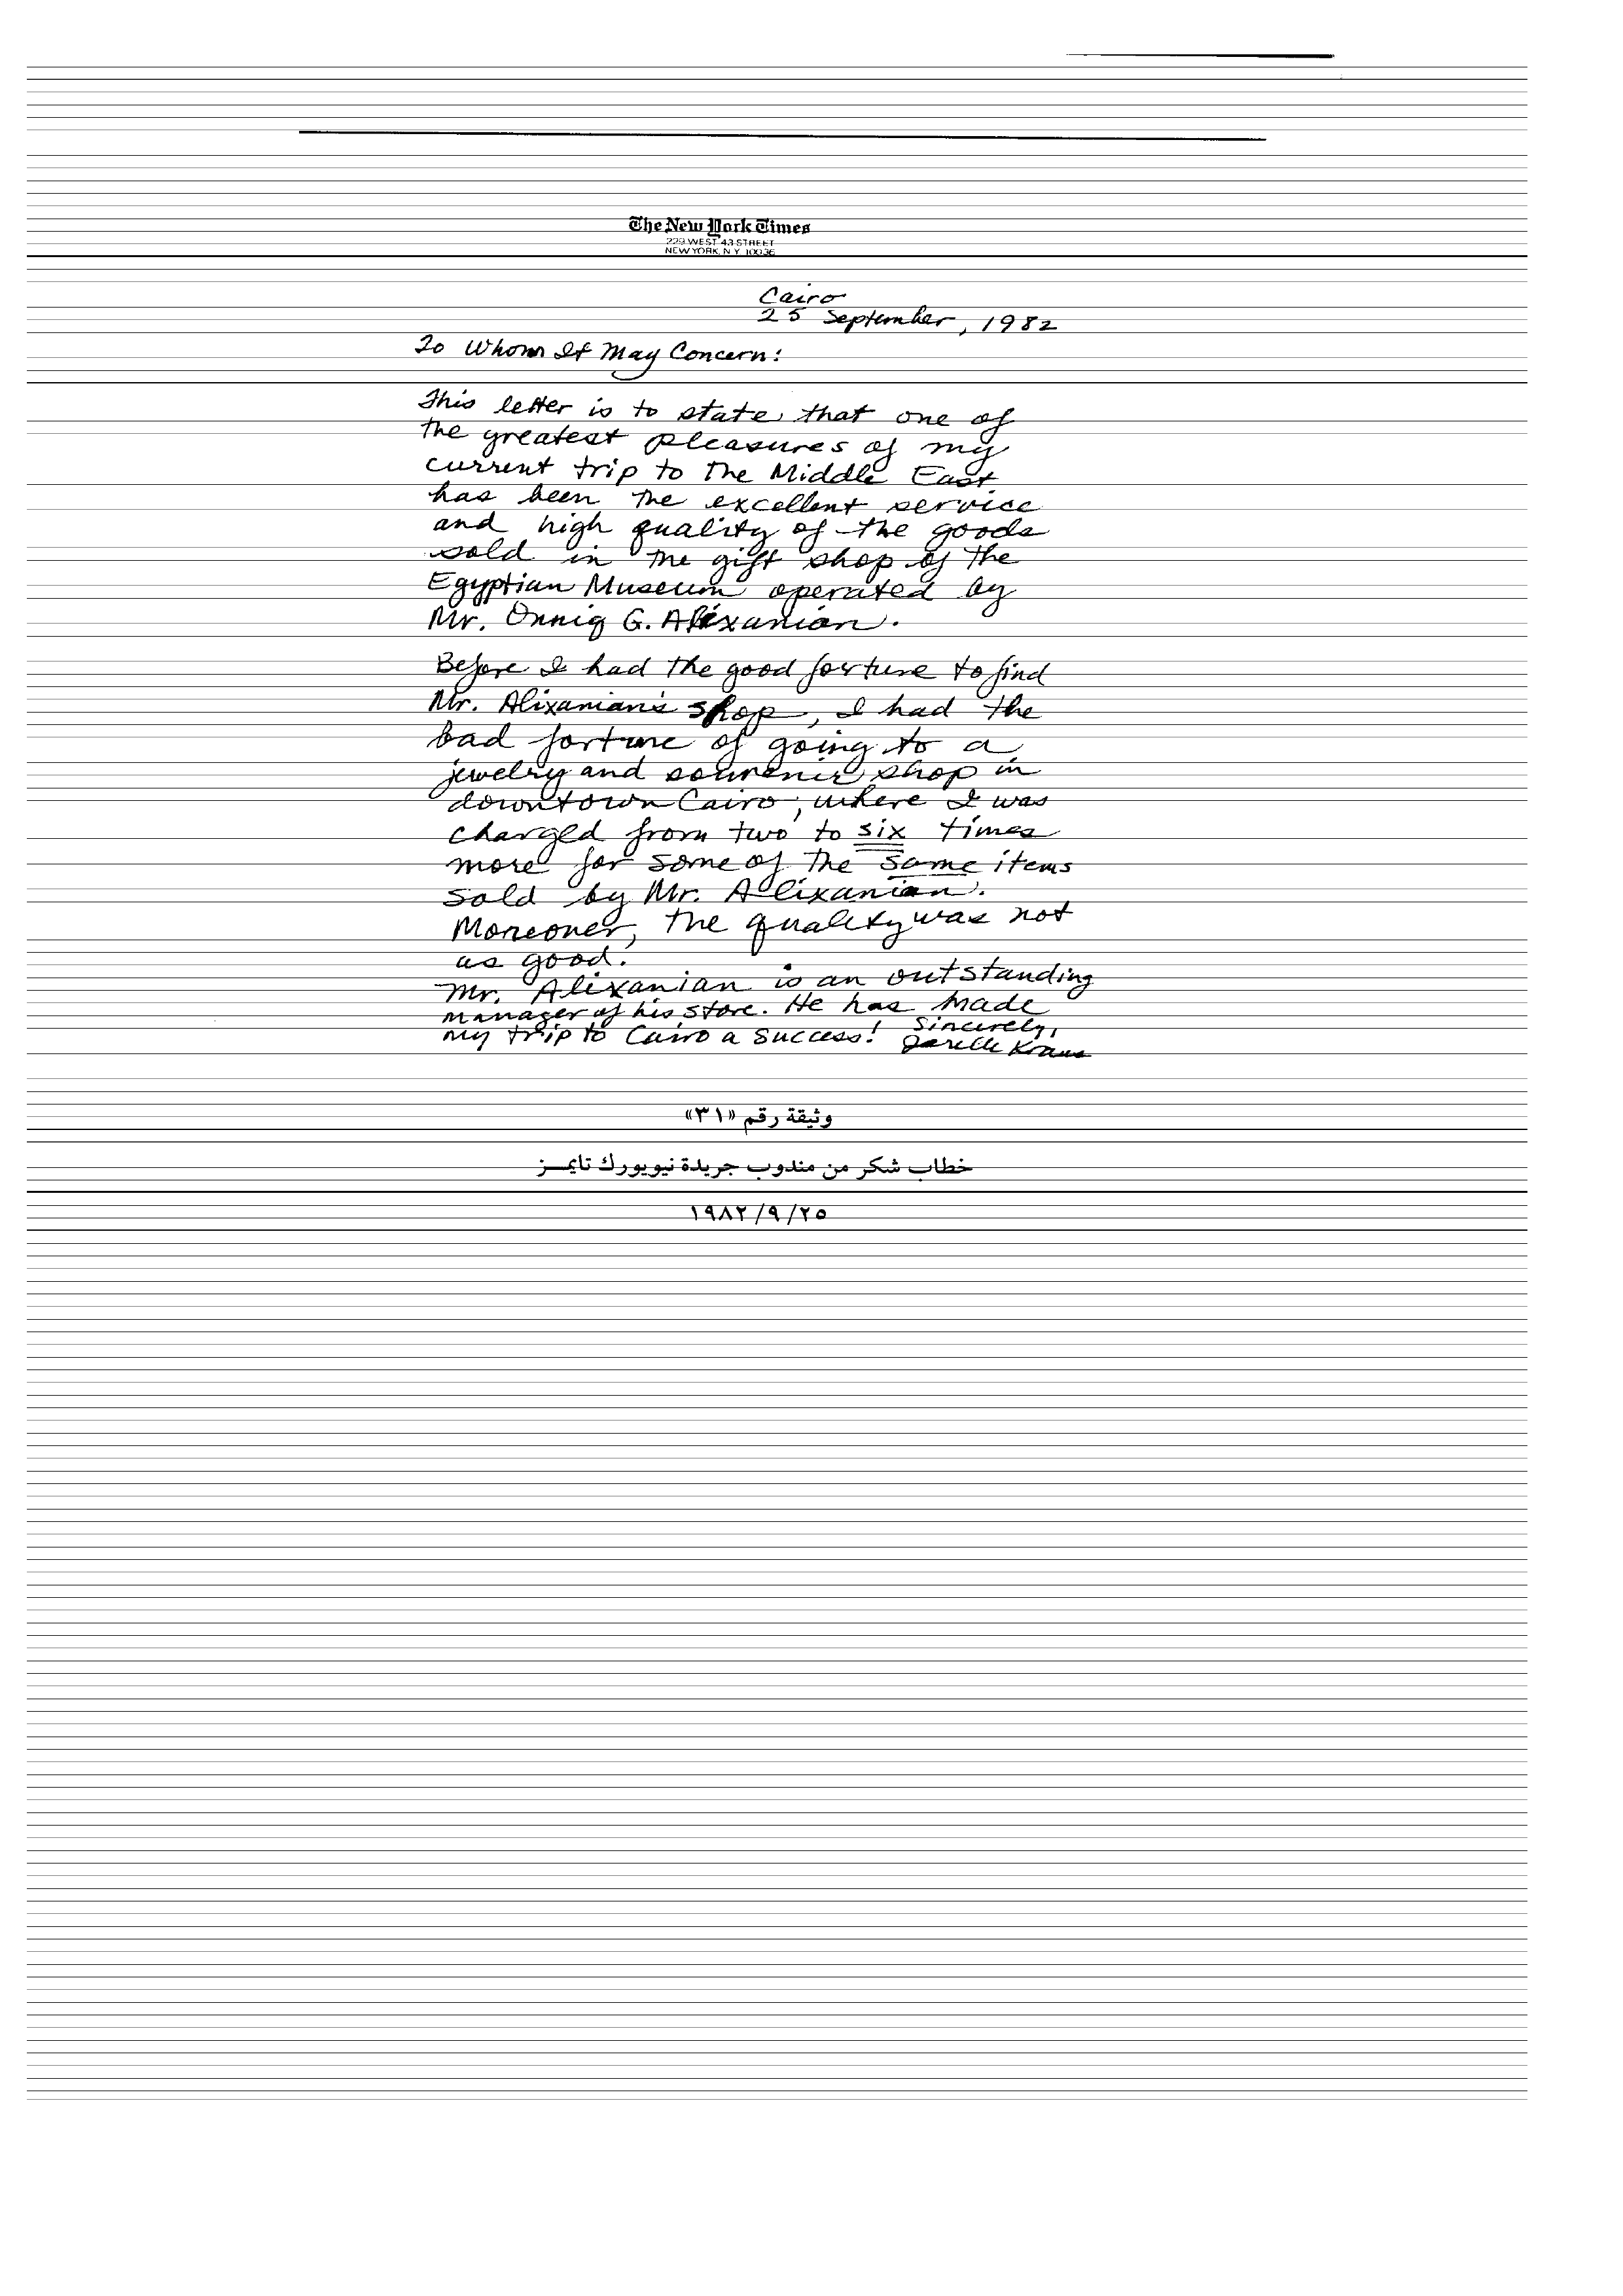 The New York Times
229 WEST 43 STREET
NEW YORK, N.Y. 10036
Cairo
25 September, 1982
To Whom It May Concern:
This letter is to state that one of
the greatest pleasures of my
current trip to the Middle East
has been the excellent service
and high quality of the goods
sold in the gift shop of the
Egyptian Museum operated by
Mr. Onnig G. Alixanian.
Before I had the good fortune to find
Mr. Alixanian's shop, I had the
bad fortune of going to a
jewelry and souvenir shop in
downtown Cairo, where I was
charged from two to six times
more for some of the same items
sold by Mr. Alixanian.
Moreover, the quality was not
as good.
Mr. Alixanian is an outstanding
manager of his store. He has made
my trip to Cairo a success! Sincerely,
Jerelle Kraus
وثيقة رقم «٣١»
خطاب شكر من مندوب جريدة نيويورك تايمـــز
١٩٨٢/٩/٢٥